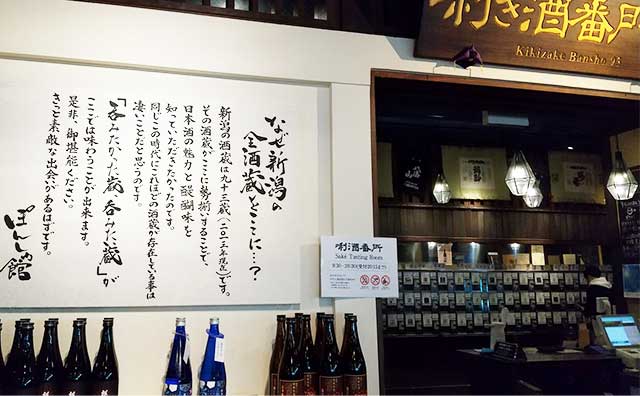 利き酒番所
Kikizake Bansho 93
なぜ新潟の
全酒蔵をここに…?
新潟の酒蔵は九十三蔵(二〇一三年現在)です。
その酒蔵がここに勢揃いすることで、
日本酒の魅力と醍醐味を
知っていただきたかったのです。
同じこの時代にこれほどの酒蔵が存在している事は
凄いことだと思うのです。
「呑みたかった蔵、呑みたい蔵」が
ここでは味わうことが出来ます。
是非、御堪能ください。
きっと素敵な出会があるはずです。
ぽんしゅ館
唎酒番所
Saké Tasting Room